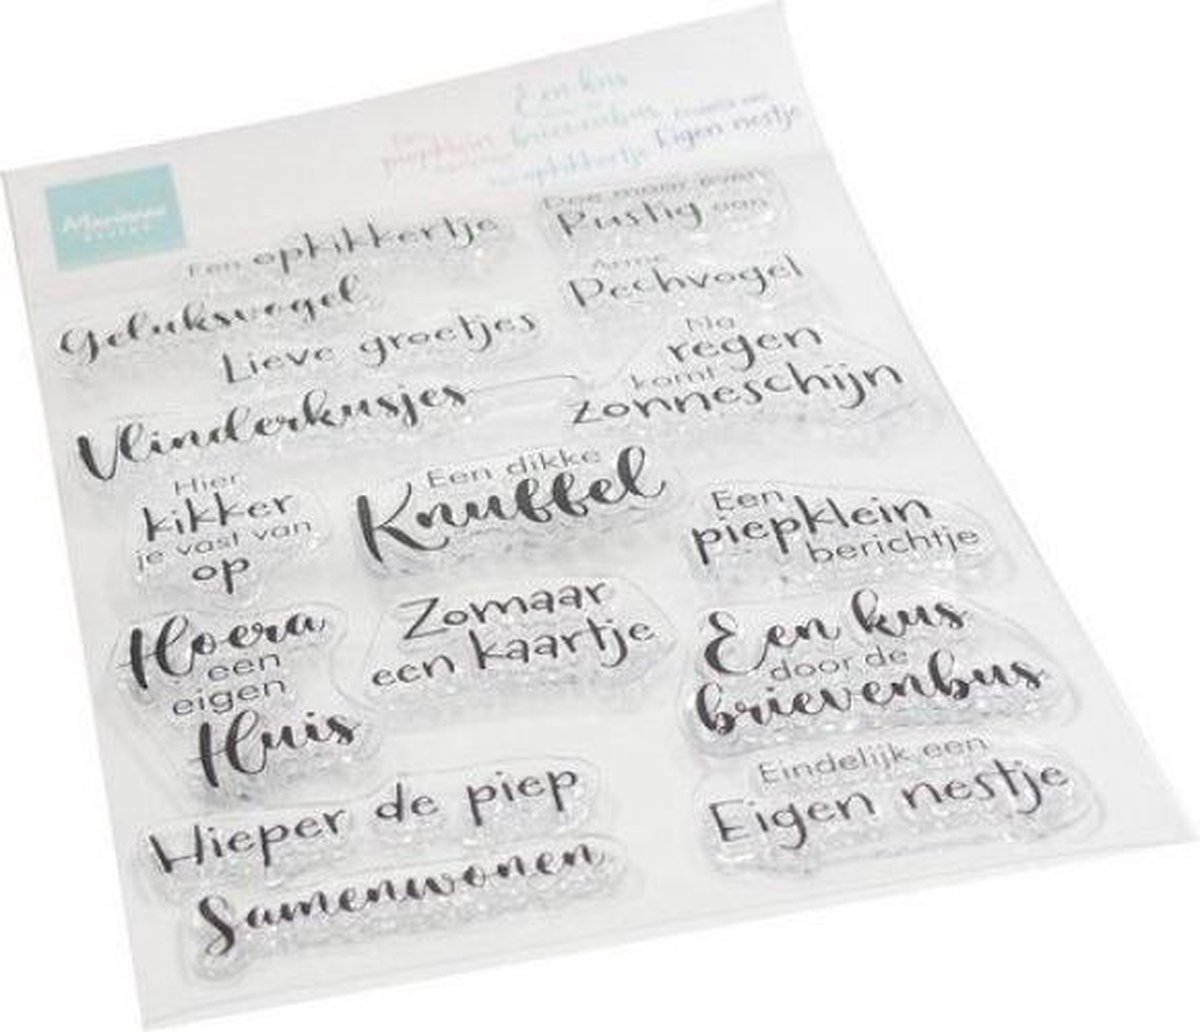 Een kus
piepklein brievenbus
Eigen nestje
opkikkertje
Marianne
Een opkikkertje
Doe maar even
Rustig aan
Geluksvogel
Arme
Pechvogel
Lieve groetjes
Na
regen
komt
zonneschijn
Vlinderkusjes
Hier
kikker
je vast van
op
Een dikke
Knuffel
Een
piepklein
berichtje
Hoera
een
eigen
Huis
Zomaar
een kaartje
Een kus
door de
brievenbus
Hieper de piep
Samenwonen
Eindelijk een
Eigen nestje